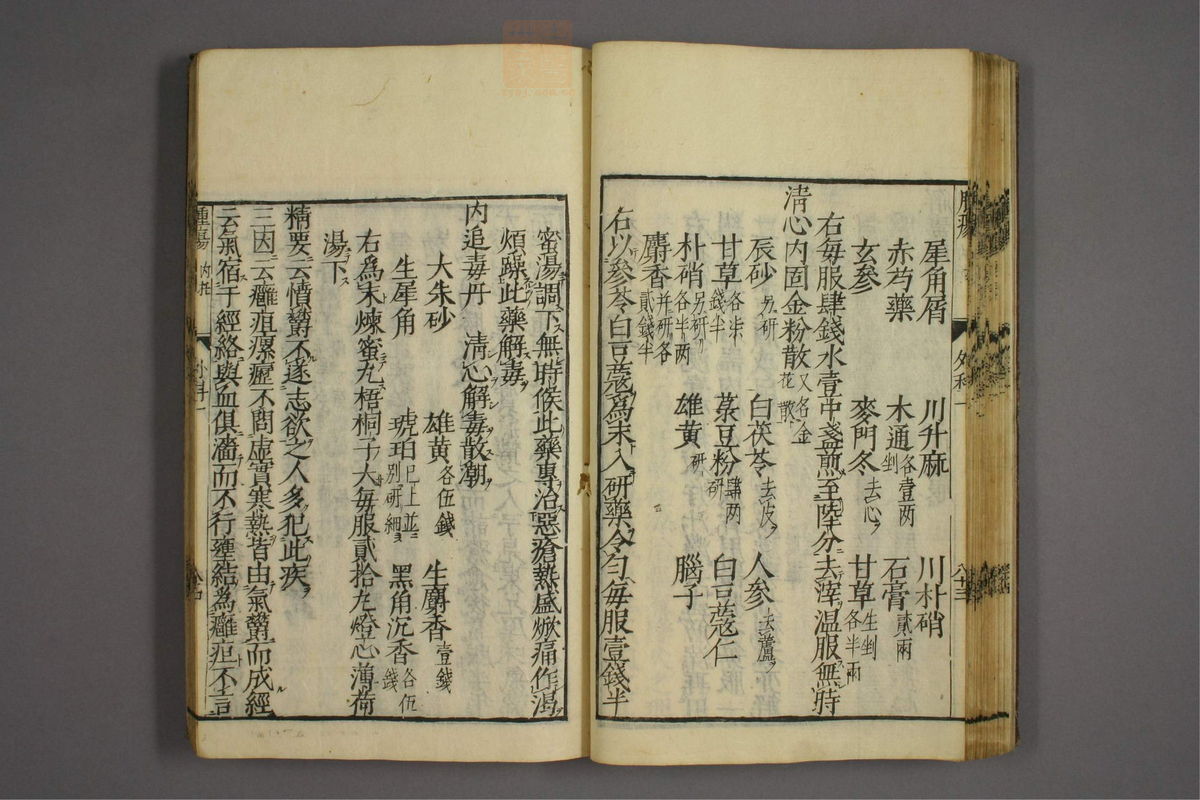 犀角屑　川升麻　川朴硝
赤芍藥　木通各壹两剉　石膏貳兩
玄參　麥門冬去心　甘草生剉各半兩
右每服肆錢水壹中盞煎至陸分去滓温服無時
清心内固金粉散又名金花散
辰砂另研　白茯苓去皮　人參去蘆
甘草各半錢半　菉豆粉肆两研　白豆蔻仁
朴硝另研各半两　雄黄研　腦子
麝香并研各貳錢半
右以參苓白豆蔻為末入研藥令匀每服壹錢半
蜜湯調下無時候此藥專治惡瘡熱盛焮痛作渴
煩躁此藥解毒
内追毒丹　清心解毒散潮
大朱砂　雄黄各伍錢　生麝香壹錢
生犀角　琥珀已上並别研細　黑角沉香各伍錢
右爲末煉蜜丸梧桐子大每服貳拾丸燈心薄荷
湯下
精要云憤欝不遂志欲之人多犯此疾
三因云癰疽瘰癧不問虚實寒熱皆由氣欝而成經
云氣宿于經絡與血俱濇而不行壅結為癰疽不言